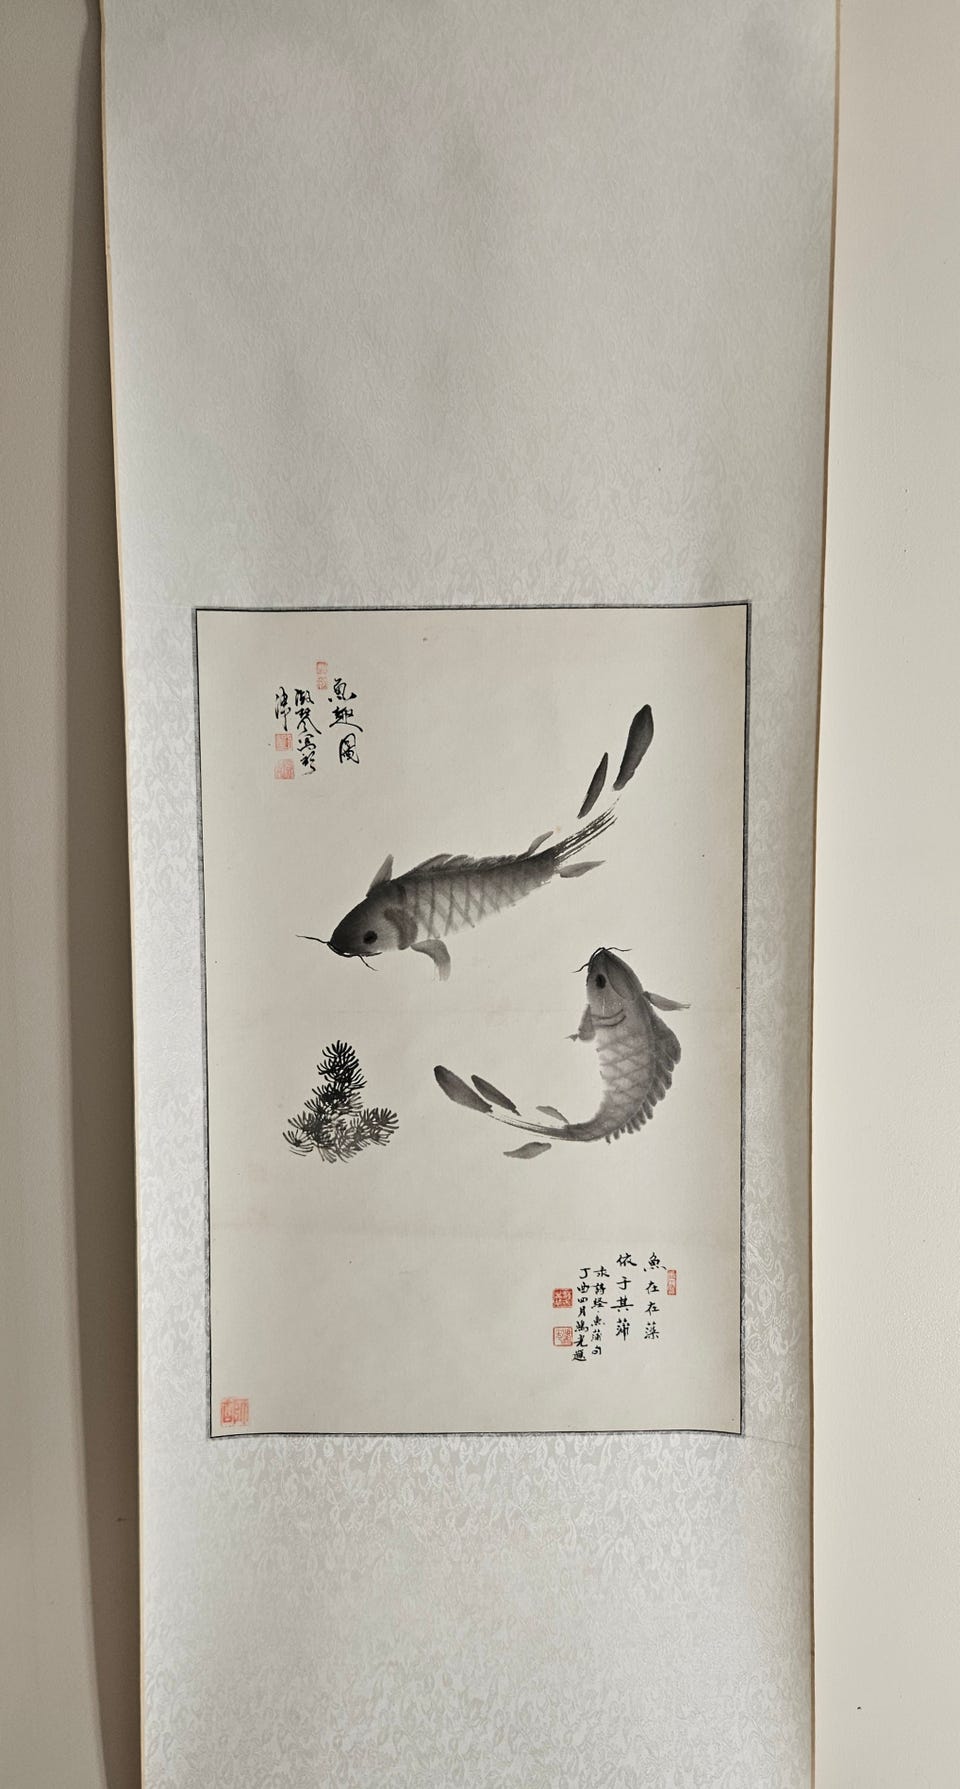 魚趣圖
淑琴寫於
津
魚在在藻
依于其蒲
求詩經·魚蒲句
丁酉四月鴻光題